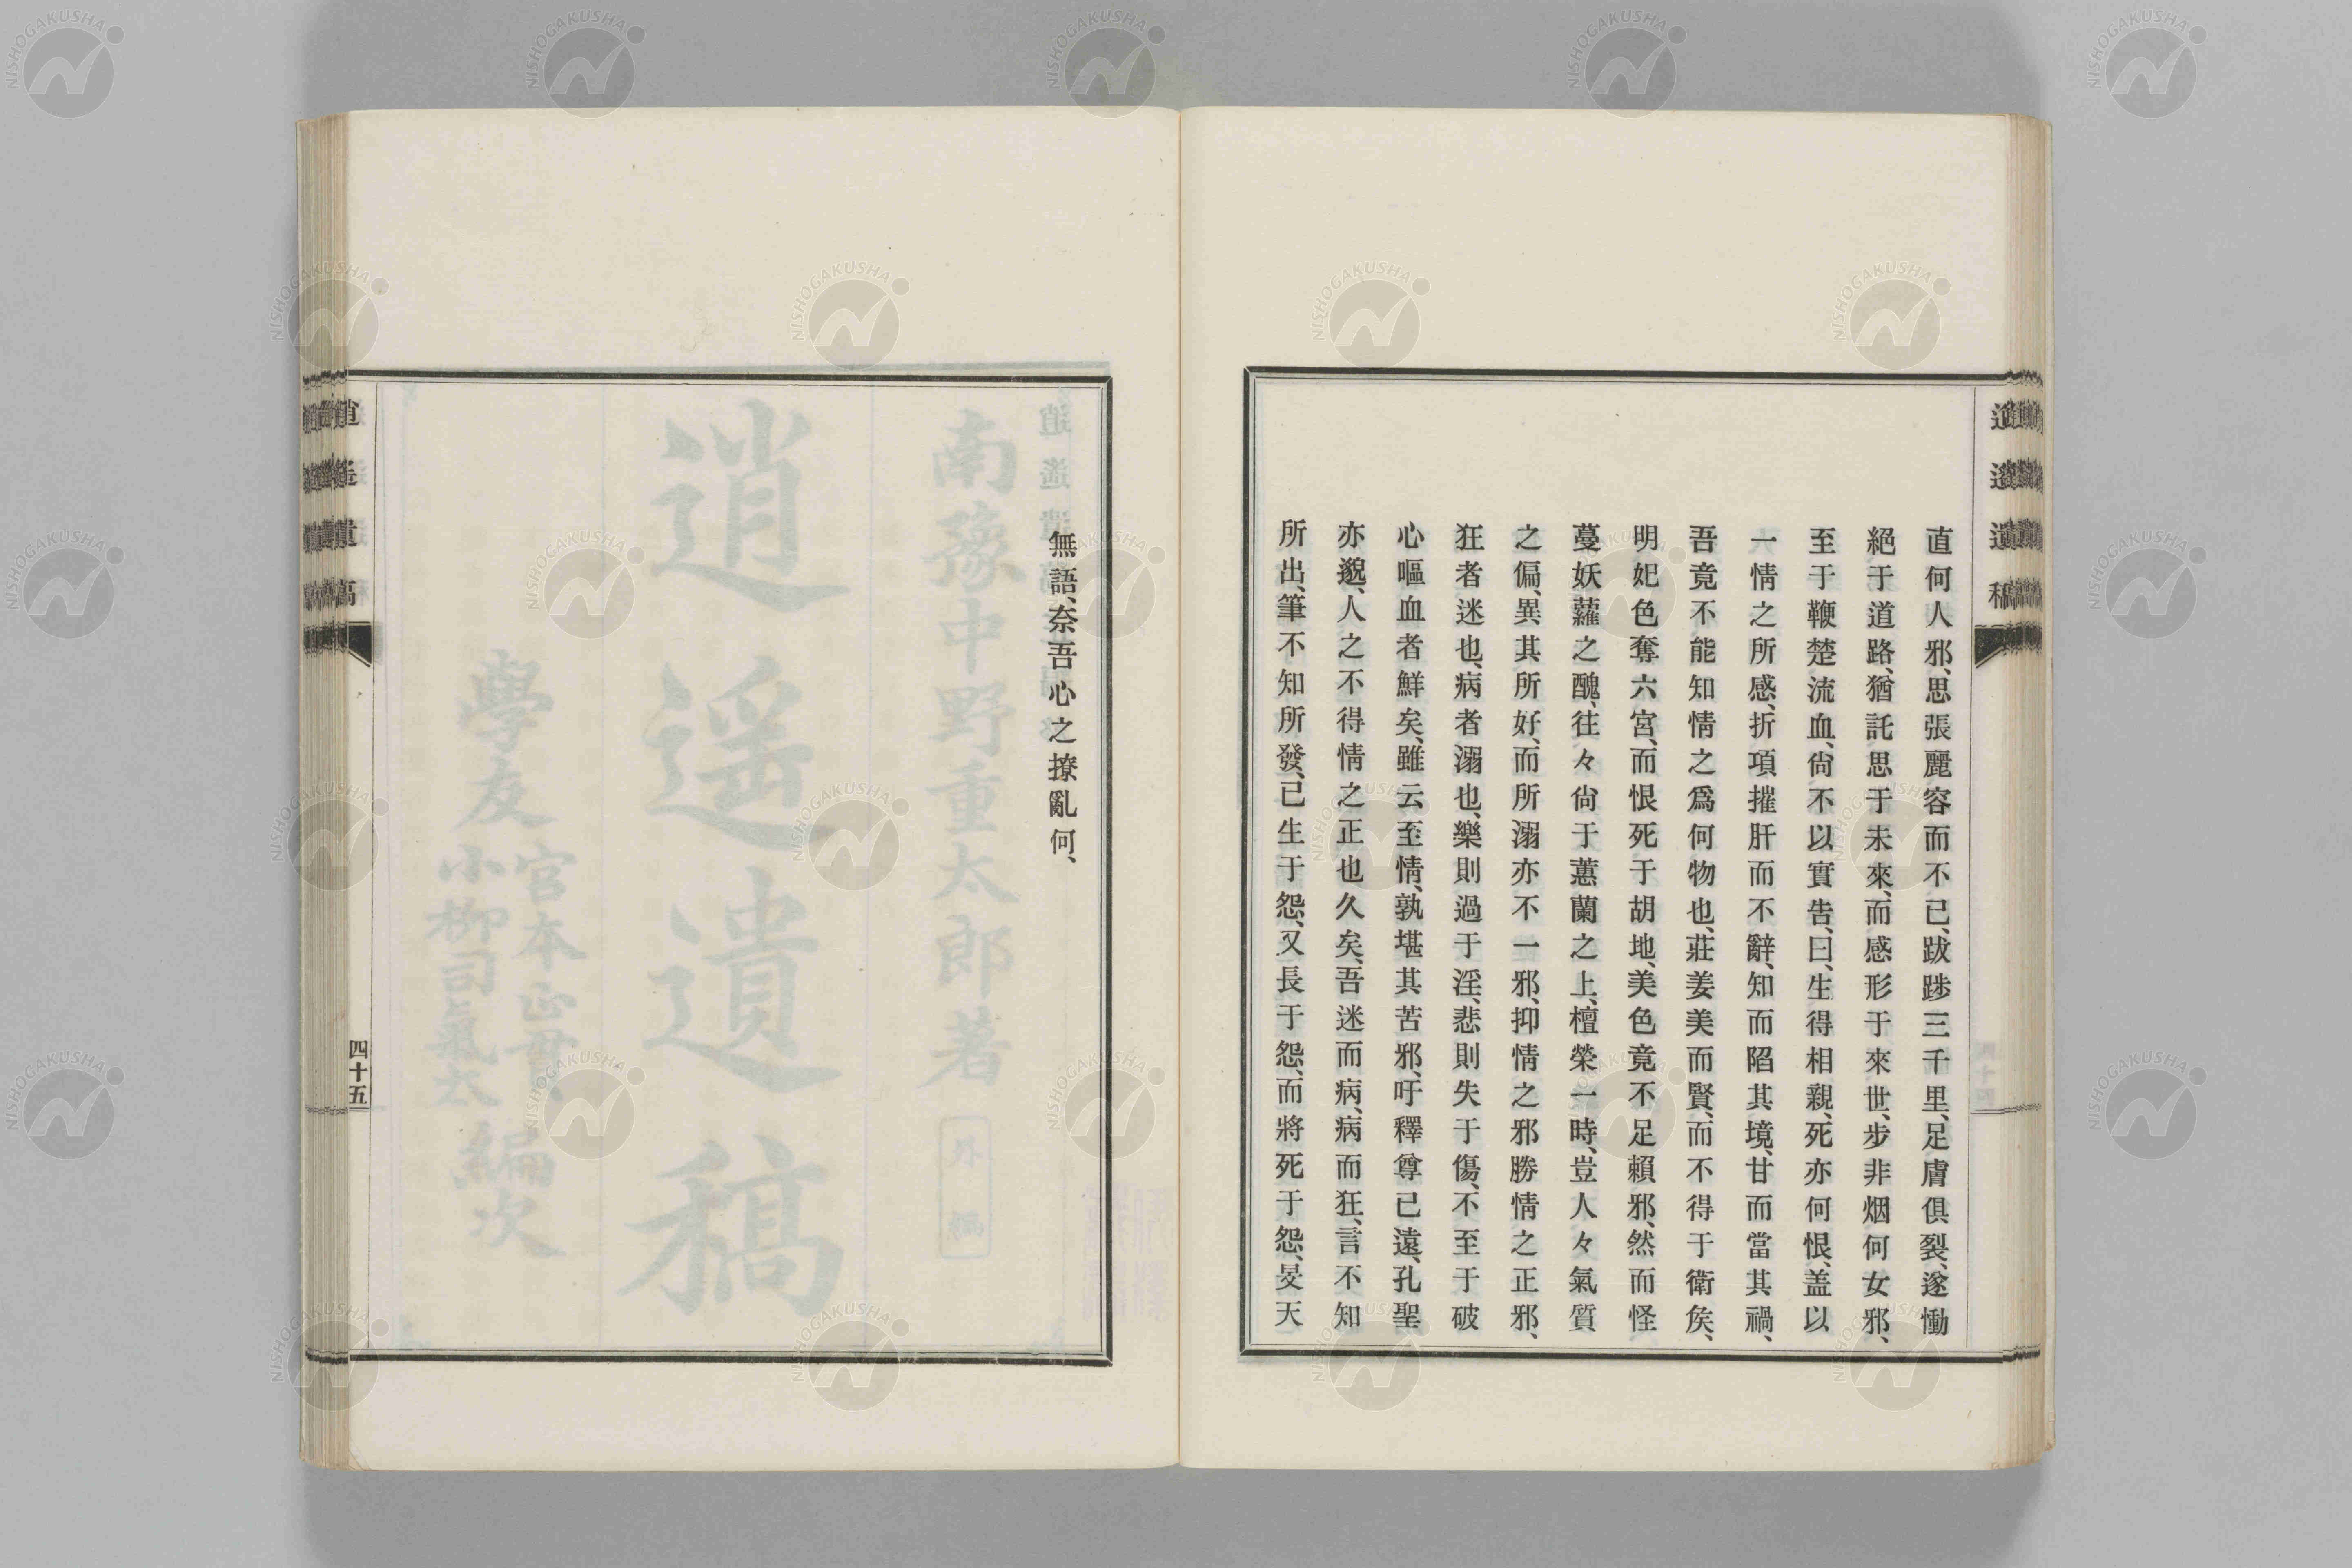 逍遙遺稿
直何人邪、思張麗容而不已、跋踄三千里、足膚俱裂、遂慟
絕于道路、猶託思于未來、而感形于來世、步非烟何女邪、
至于鞭楚流血、尙不以實吿、曰、生得相親、死亦何恨、盖以
一情之所感、折項摧肝而不辭、知而陷其境、甘而當其禍、
吾竟不能知情之爲何物也、莊姜美而賢、而不得于衛矦、
明妃色奪六宮、而恨死于胡地、美色竟不足賴邪、然而怪
蔓妖蘿之醜、往々尙于蕙蘭之上、檀榮一時、豈人々氣質
之偏、異其所好、而所溺亦不一邪、抑情之邪勝情之正邪、
狂者迷也、病者溺也、樂則過于淫、悲則失于傷、不至于破
心嘔血者鮮矣、雖云至情、孰堪其苦邪、吁釋尊已遠、孔聖
亦邈、人之不得情之正也久矣、吾迷而病、病而狂、言不知
所出、筆不知所發、已生于怨、又長于怨、而將死于怨、旻天
無語、奈吾心之撩亂何、
逍遙遺稿
四十五
南豫中野重太郎著
外編
逍遙遺稿
學友
宮本正貫
小柳司氣太
編次
NISHOGAKUSHA